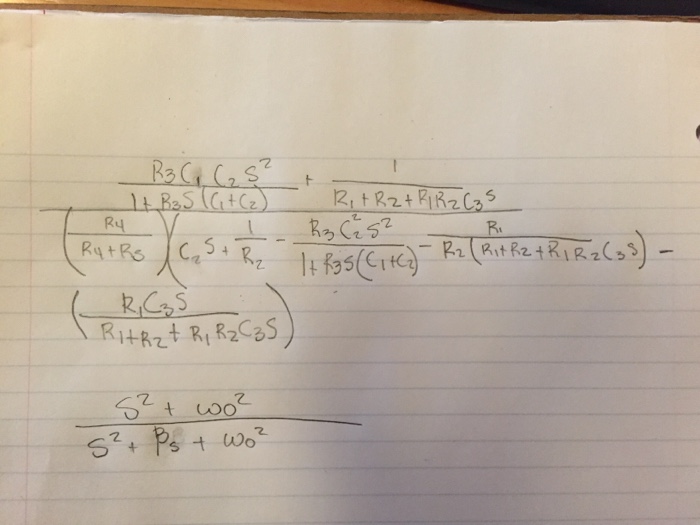 R3C1C2S² / 1+R3S(C1+C2) + 1 / R1+R2+R1R2C3S
(R4 / R4+R5)(C2S + 1/R2 - R3C2²S² / 1+R3S(C1+C2) - R1 / R2(R1+R2+R1R2C3S) -
(R1C3S / R1+R2+R1R2C3S)
S² + ωo²
S² + βs + ωo²